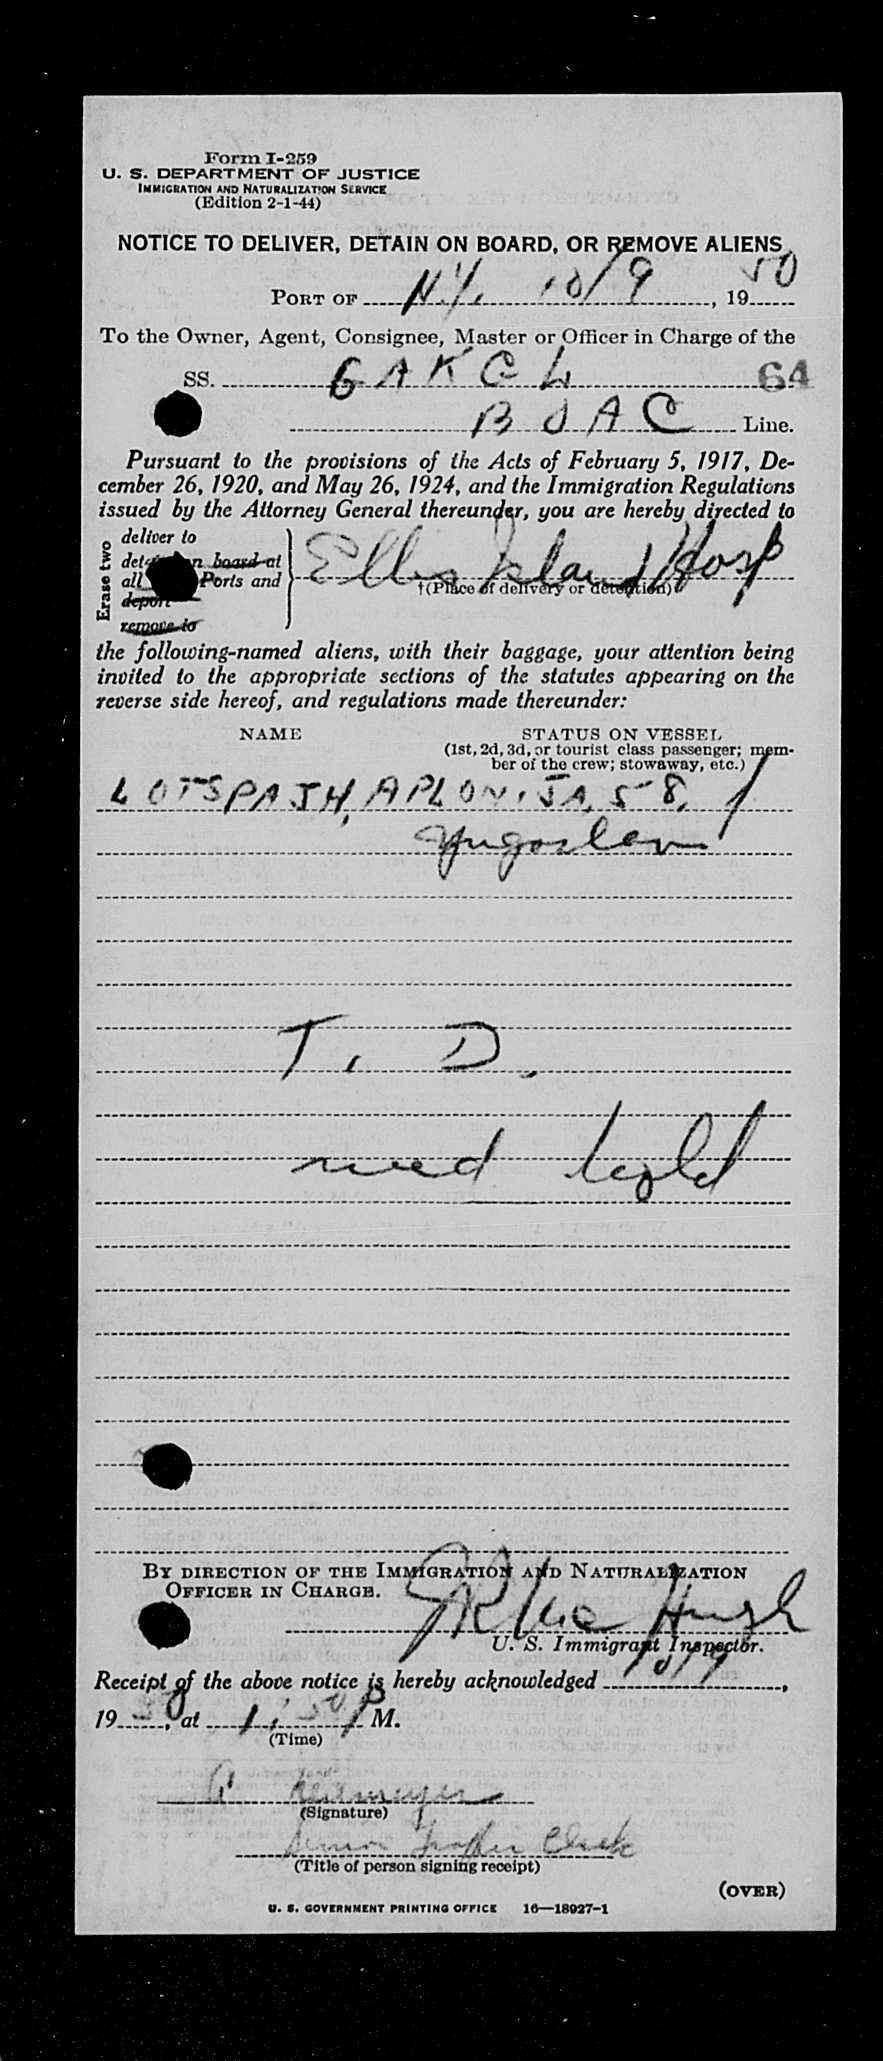 Form I-259
U. S. DEPARTMENT OF JUSTICE
IMMIGRATION AND NATURALIZATION SERVICE
(Edition 2-1-44)
NOTICE TO DELIVER, DETAIN ON BOARD, OR REMOVE ALIENS
PORT OF N.Y. 10/9, 1950
To the Owner, Agent, Consignee, Master or Officer in Charge of the
SS. G A K C L 64
B O A C Line.
Pursuant to the provisions of the Acts of February 5, 1917, De-
cember 26, 1920, and May 26, 1924, and the Immigration Regulations
issued by the Attorney General thereunder, you are hereby directed to
Erase two
deliver to
on board at
all Ports and
deport
remove to
Ellis Island Hosp
†(Place of delivery or detention)
the following-named aliens, with their baggage, your attention being
invited to the appropriate sections of the statutes appearing on the
reverse side hereof, and regulations made thereunder:
NAME STATUS ON VESSEL
(1st, 2d, 3d, or tourist class passenger; mem-
ber of the crew; stowaway, etc.)
LOTSPAJH, APLONIJA, 58, /
Yugoslav
T. D.
med hold
BY DIRECTION OF THE IMMIGRATION AND NATURALIZATION
OFFICER IN CHARGE.
U. S. Immigrant Inspector.
Receipt of the above notice is hereby acknowledged 10/9,
1950, at 1:50 P M.
(Time)
(Signature)
Senior Traffic Clerk
(Title of person signing receipt)
(OVER)
U. S. GOVERNMENT PRINTING OFFICE 16—18927-1